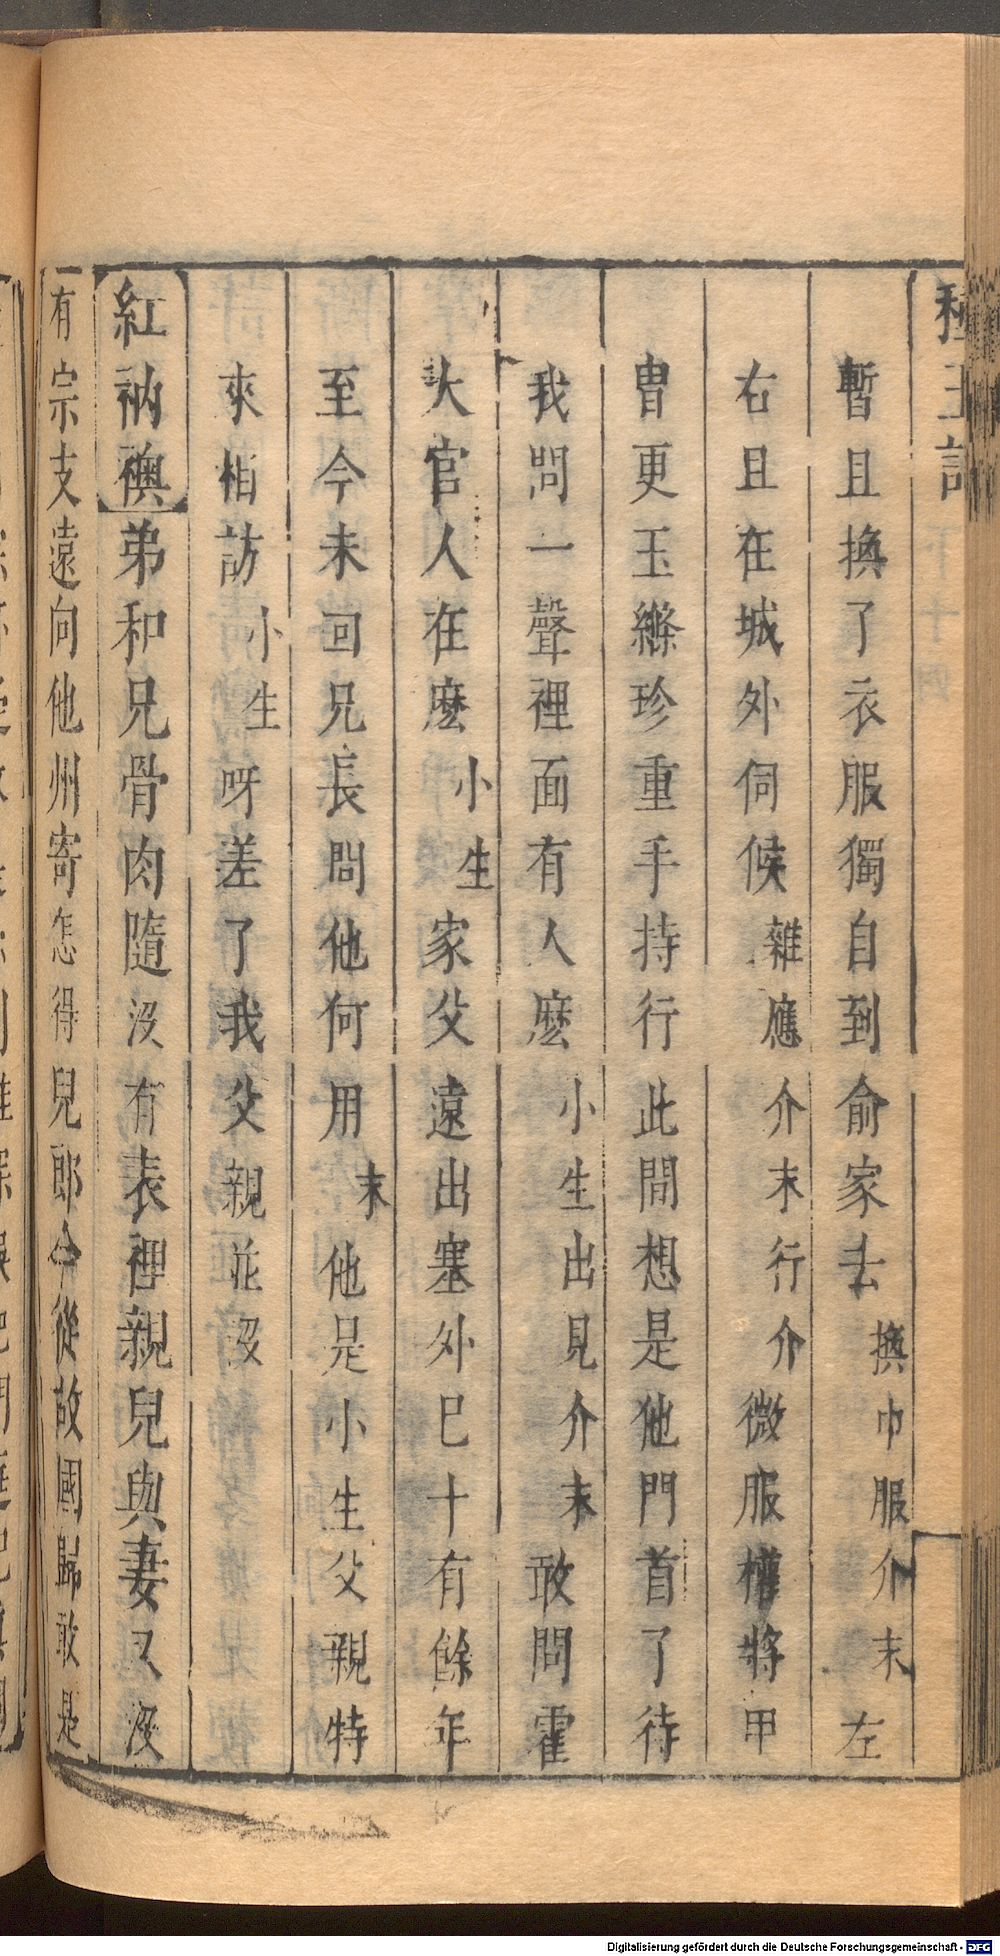 種玉記
下十四
暫且換了衣服獨自到俞家去換巾服介末左
右且在城外伺候雜應介末行介微服權將甲
胄更玉縧珍重手持行此間想是他門首了待
我問一聲裡面有人麽小生出見介末敢問霍
大官人在麽小生家父遠出塞外巳十有餘年
至今未回兄長問他何用末他是小生父親特
來相訪小生呀差了我父親並沒
紅衲襖弟和兄骨肉隨沒有表裡親兒與妻又沒
有宗支遠向他州寄怎得兒郎今從故國歸敢是
Digitalisierung gefördert durch die Deutsche Forschungsgemeinschaft - DFG